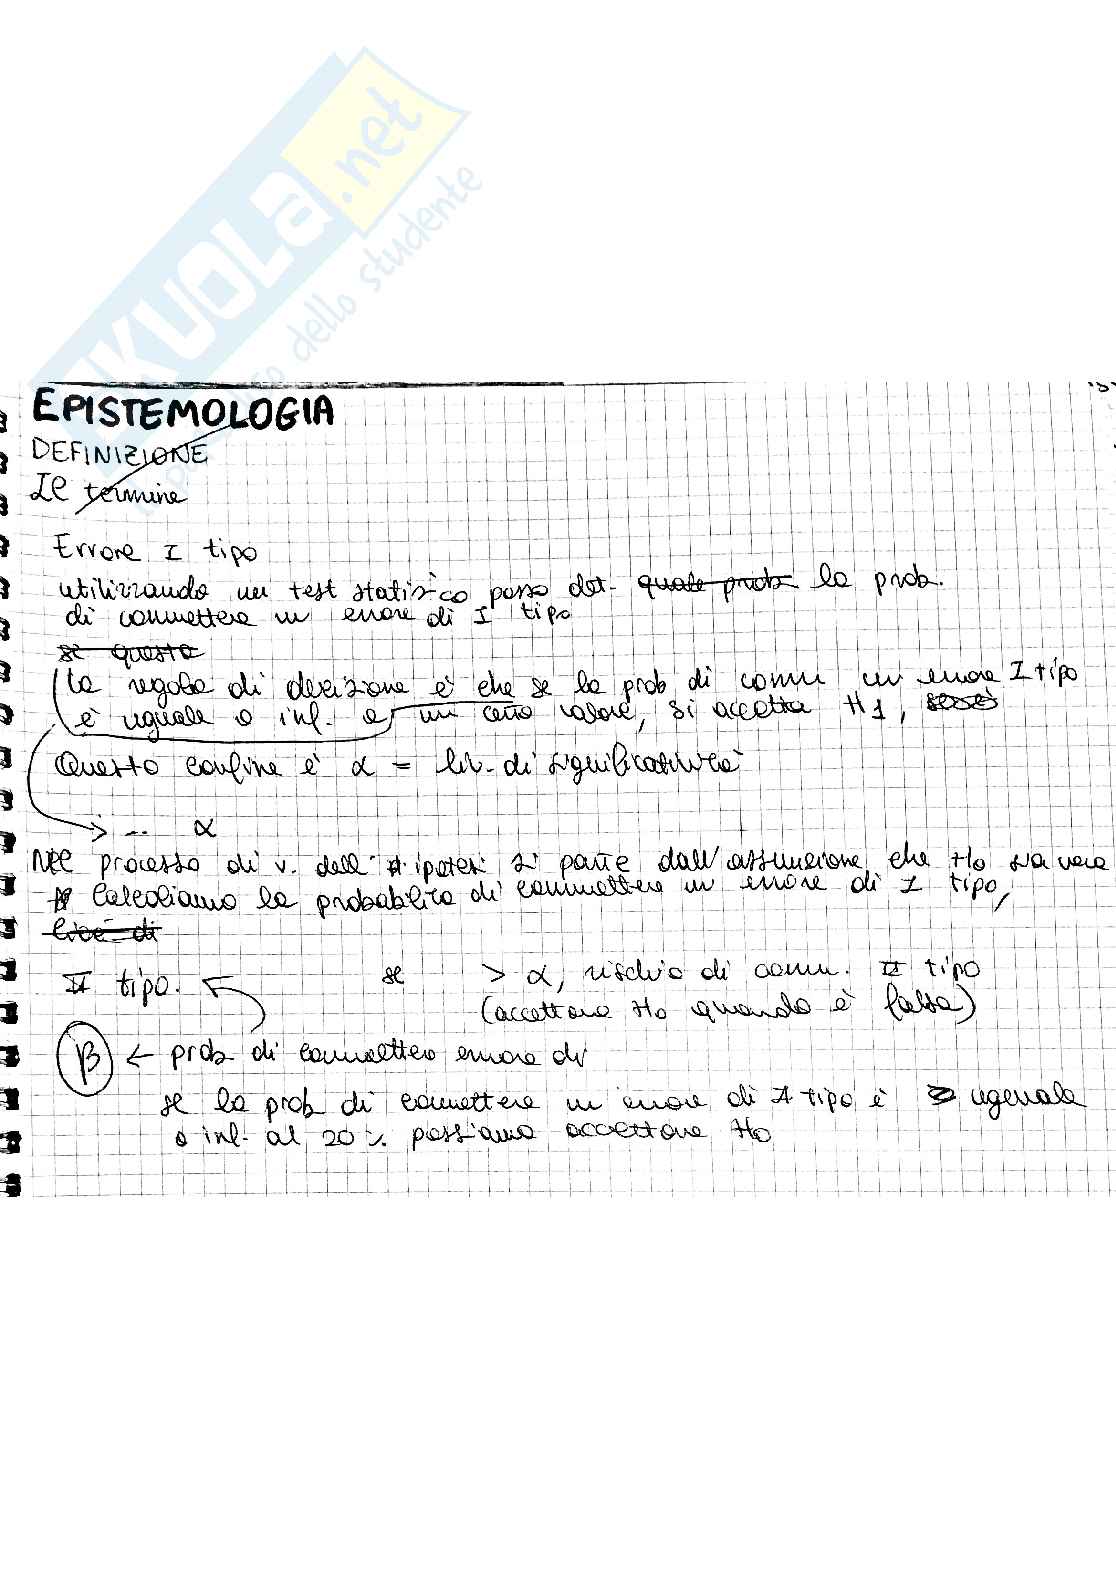 SKUOLA.net
dello studente
EPISTEMOLOGIA
DEFINIZIONE
Il termine
Errore I tipo
utilizzando un test statistico posso det. quale prob. la prob.
di commettere un errore di I tipo
se questa
La regola di decisione è che se la prob di comm un errore I tipo
è uguale o inf. a un certo valore, si accetta H1,
Questo confine è α = liv. di significatività
... α
Nel processo di v. dell' ipotesi si parte dall'assunzione che H0 sia vera
Calcoliamo la probabilità di commettere un errore di I tipo,
cioè di
se > α, rischio di comm. II tipo
II tipo.
(accettare H0 quando è falsa)
β ← prob di commettere errore di
se la prob di commettere un errore di I tipo è uguale
o inf. al 20% possiamo accettare H0